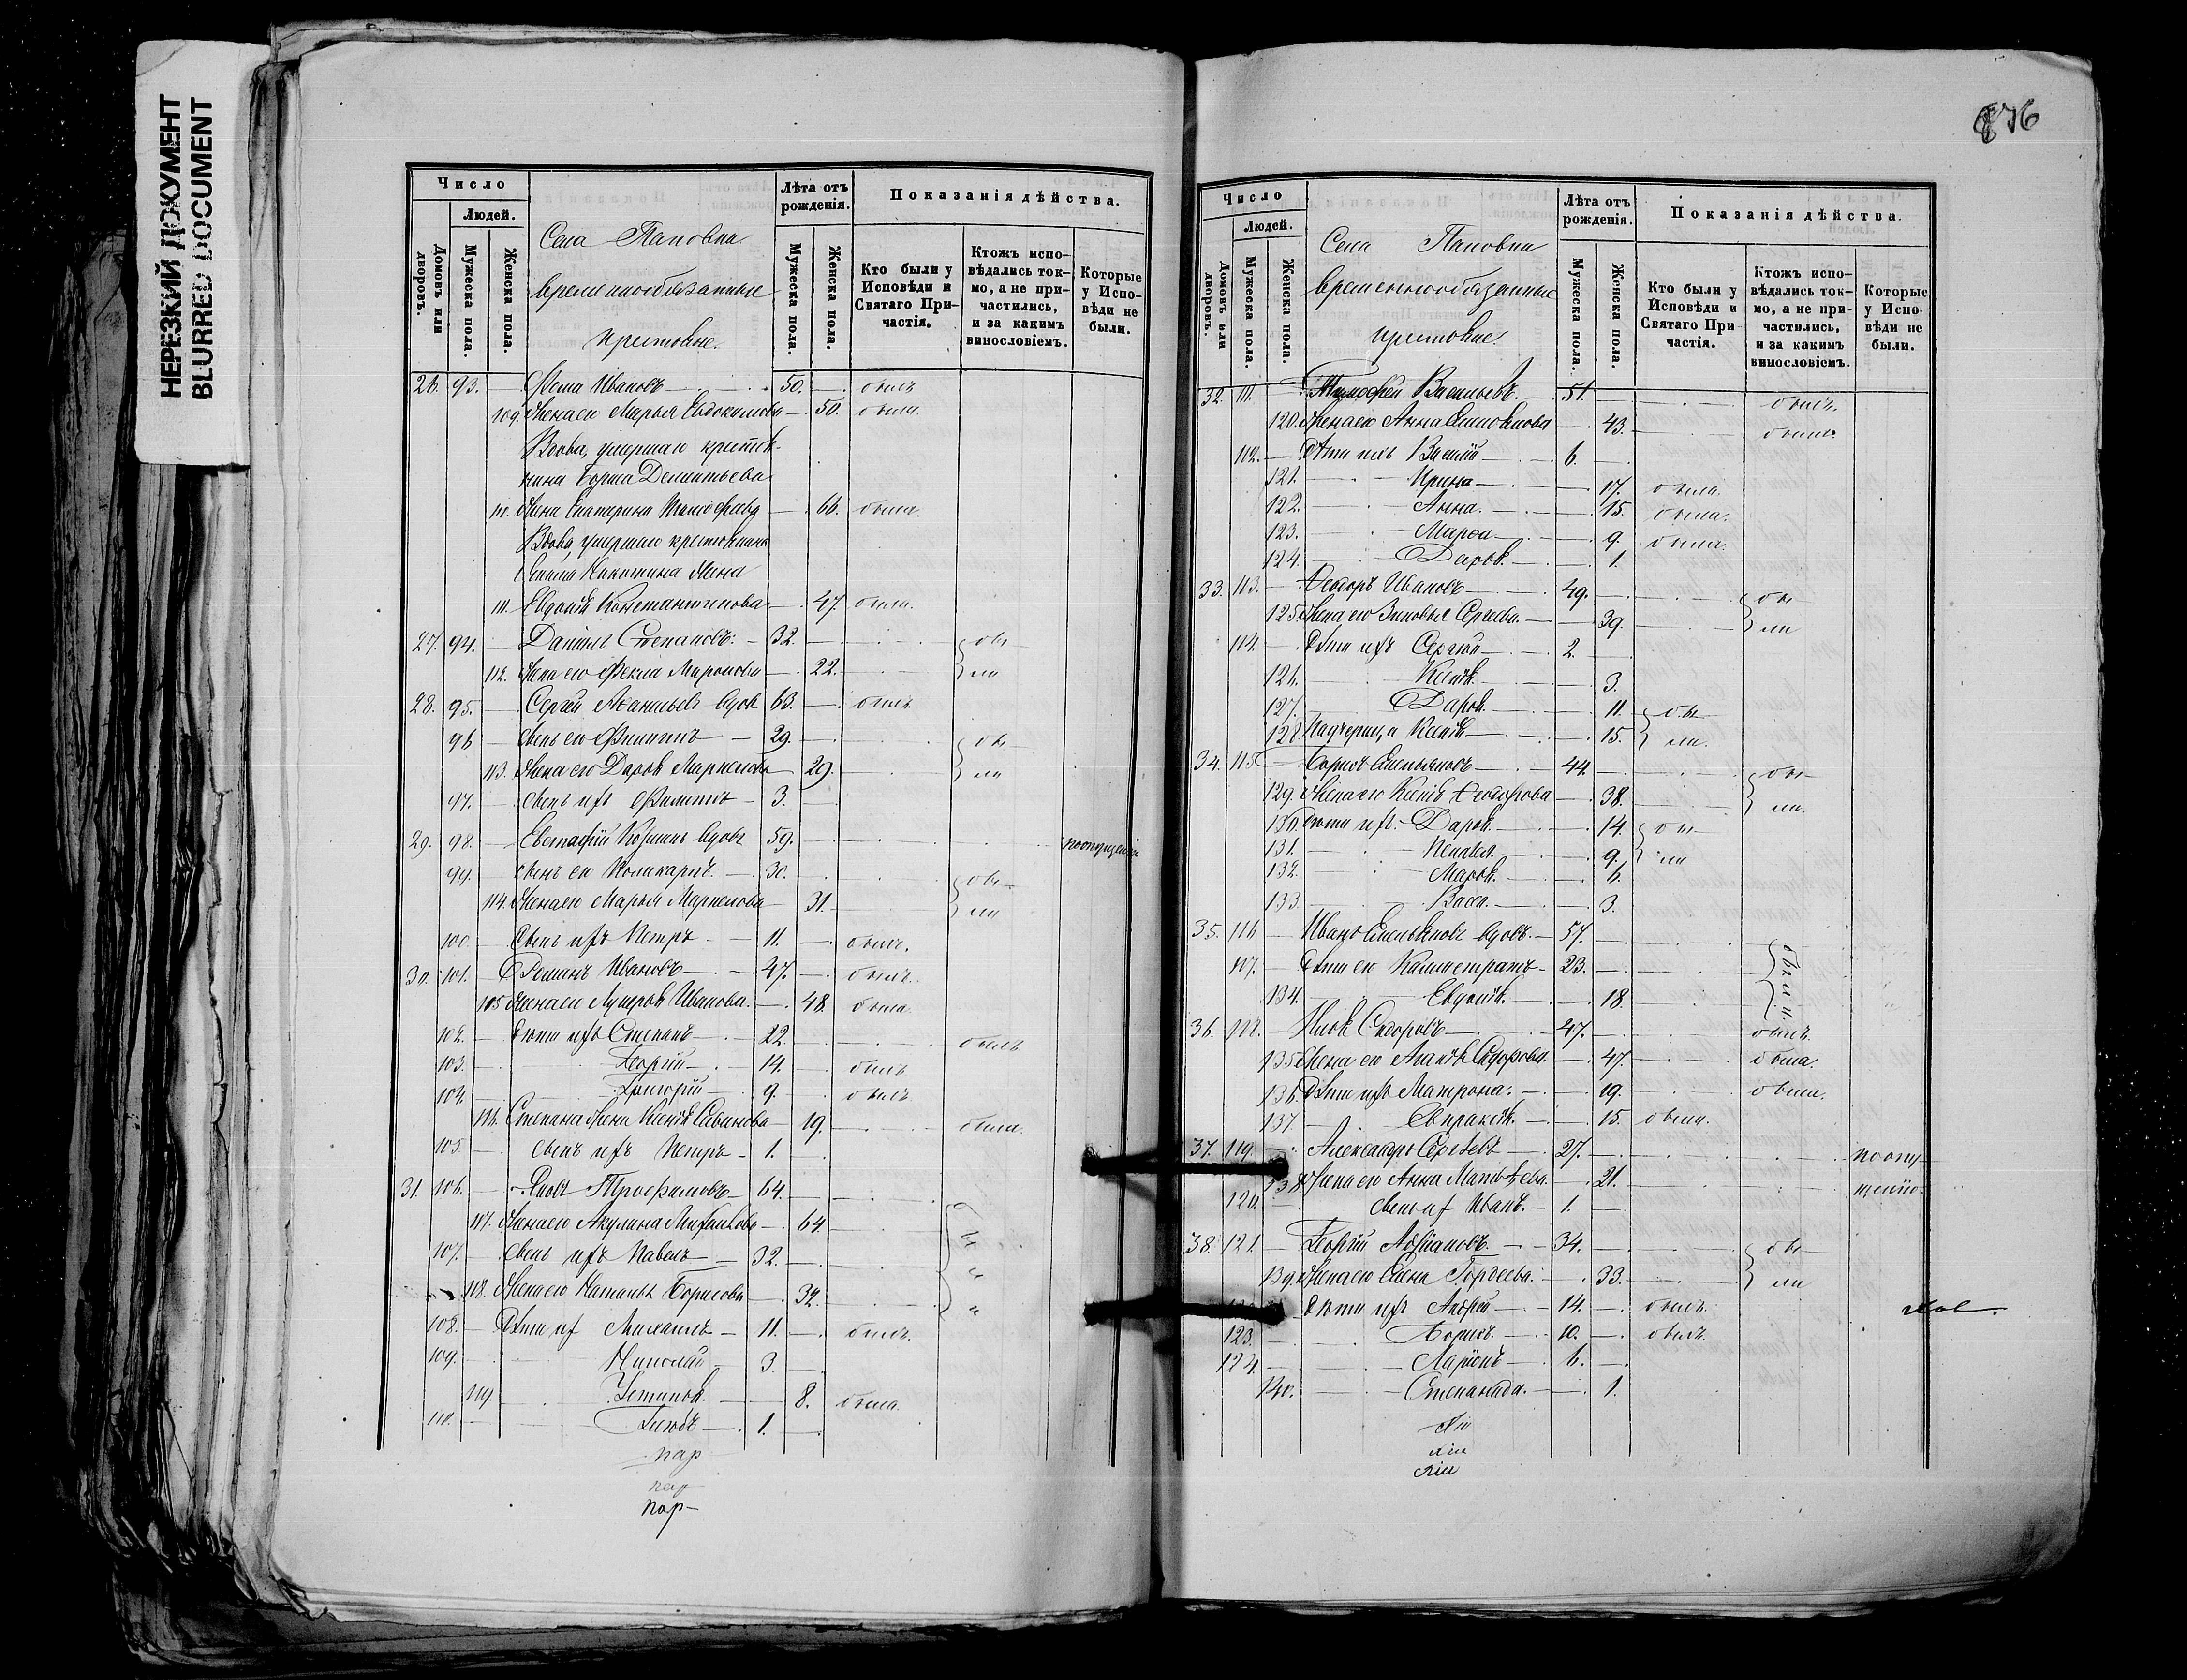 НЕРЕЗКИЙ ДОКУМЕНТ
BLURRED DOCUMENT
876
Число
Людей.
Домовъ или дворовъ.
Мужеска пола.
Женска пола.
Села Паповки
временнообязанные
крестьяне.
Лѣта отъ рожденія.
Мужеска пола.
Женска пола.
Показанія дѣйства.
Кто были у Исповѣди и Святаго Причастія.
Ктожъ исповѣдались токмо, а не причастились, и за какимъ винословіемъ.
Которые у Исповѣди не были.
26. 93. — Ѳома Ивановъ — 50. — былъ
109. Жена его Марья Евдокимова — 50. была.
Вдова, умершаго крестья-
нина Бориса Дементьева
Жена Екатерина Тимофеева — 66. была.
Вдова, умершаго крестьянина
Никитина Жена
111. Евдокія Константинова — 47. была.
27. 94. — Даніилъ Степановъ. — 32. — бы
112. Жена его Фекла Миронова — 22. — ли
28. 95. — Сергей Ананьевъ вдов 63. — былъ
96 — Сынъ его Филиппъ — 29. — бы
113. Жена его Дарья Маркелова — 29. — ли
97. — Сынъ ихъ Филиппъ — 3. —
29. 98. — Евстафій Козминъ вдовъ 59. — по опущенію
99. — Сынъ его Поликарпъ. — 30. бы
114. Жена его Марья Маркелова — 31. — ли
100. — Сынъ ихъ Петръ — 11. — былъ.
30. 101. — Ѳ Ивановъ — 47. — былъ.
115 Жена его Лукерья Иванова. — 48. была
102. — Дѣти ихъ Степанъ — 22. — былъ
103. — Георгій — 14. — былъ
104. — Григорій — 9. — былъ
116. Степана Жена Ксенія Саванова — 19. — была.
105. — Сынъ ихъ Петръ — 1. —
31. 106. — Яковъ Трофимовъ — 64. — бы
117. Жена его Акулина Михайлова — 64. —
107. — Сынъ ихъ Павелъ — 32. —
118. Жена его Наталья Борисова — 32. —
108. — Дѣти их Михаилъ — 11. — былъ.
109. — Николай 3. —
119. Устинья. — 8. была.
110. — Глѣбъ — 1. —
пар
пар
пар—
Число
Людей.
Домовъ или дворовъ.
Мужеска пола.
Женска пола.
Села Паповки
временнообязанные
крестьяне.
Лѣта отъ рожденія.
Мужеска пола.
Женска пола.
Показанія дѣйства.
Кто были у Исповѣди и Святаго Причастія.
Ктожъ исповѣдались токмо, а не причастились, и за какимъ винословіемъ.
Которые у Исповѣди не были.
32. 111. — Тимофей Васильевъ. — 51. — былъ.
120. Жена его Анна Емельянова — 43. — была.
112. — Дѣти ихъ Василій — 6. —
121. — Ирина — 17. была.
122. — Анна. — 15. была.
123. — Марѳа — 9. была.
124. — Дарья. — 1.
33. 113. — Ѳеодоръ Ивановъ — 49. — бы
125. Жена его Зиновья Сергеева. — 39. — ли
114. — Дѣти ихъ Сергій — 2. —
126. — Ксенія. — 3.
127. — Дарья. — 11. бы
128. Падчерица Ксенія — 15. ли.
34. 115 — Борисъ Емельяновъ — 44. — бы
129. Жена его Ксенія Ѳеодорова — 38. — ли.
130. Дѣти ихъ: Дарья. — 14. бы
131. — — 9. ли
132. — Марья. — 6.
133. — Васса. — 3.
35. 116 — Иванъ Емельяновъ вдовъ. — 57. — были.
117. — Дѣти его Каллистратъ — 23. —
134. — Евдокія. — 18.
36. 118. — Илья Сидоровъ — 47. — былъ.
135. Жена его Сидорова. — 47. — была.
136. Дѣти ихъ Матрона. — 19. — была.
137. — Евпраксія. — 15. была.
37. 119. — Александръ Сергѣевъ — 27. — по опу-
138. Жена его Анна Матвѣева. — 21. — щенію.
120. — Сынъ их Иванъ. — 1. —
38. 121. — Георгій Адріановъ. — 34. — бы
139. Жена его Елена Гордеева. — 33. — ли
Дѣти ихъ Андрей — 14. — былъ.
123. — Борисъ. — 10. — былъ.
124. — Ларіонъ — 6. —
140. — Степанида. — 1.